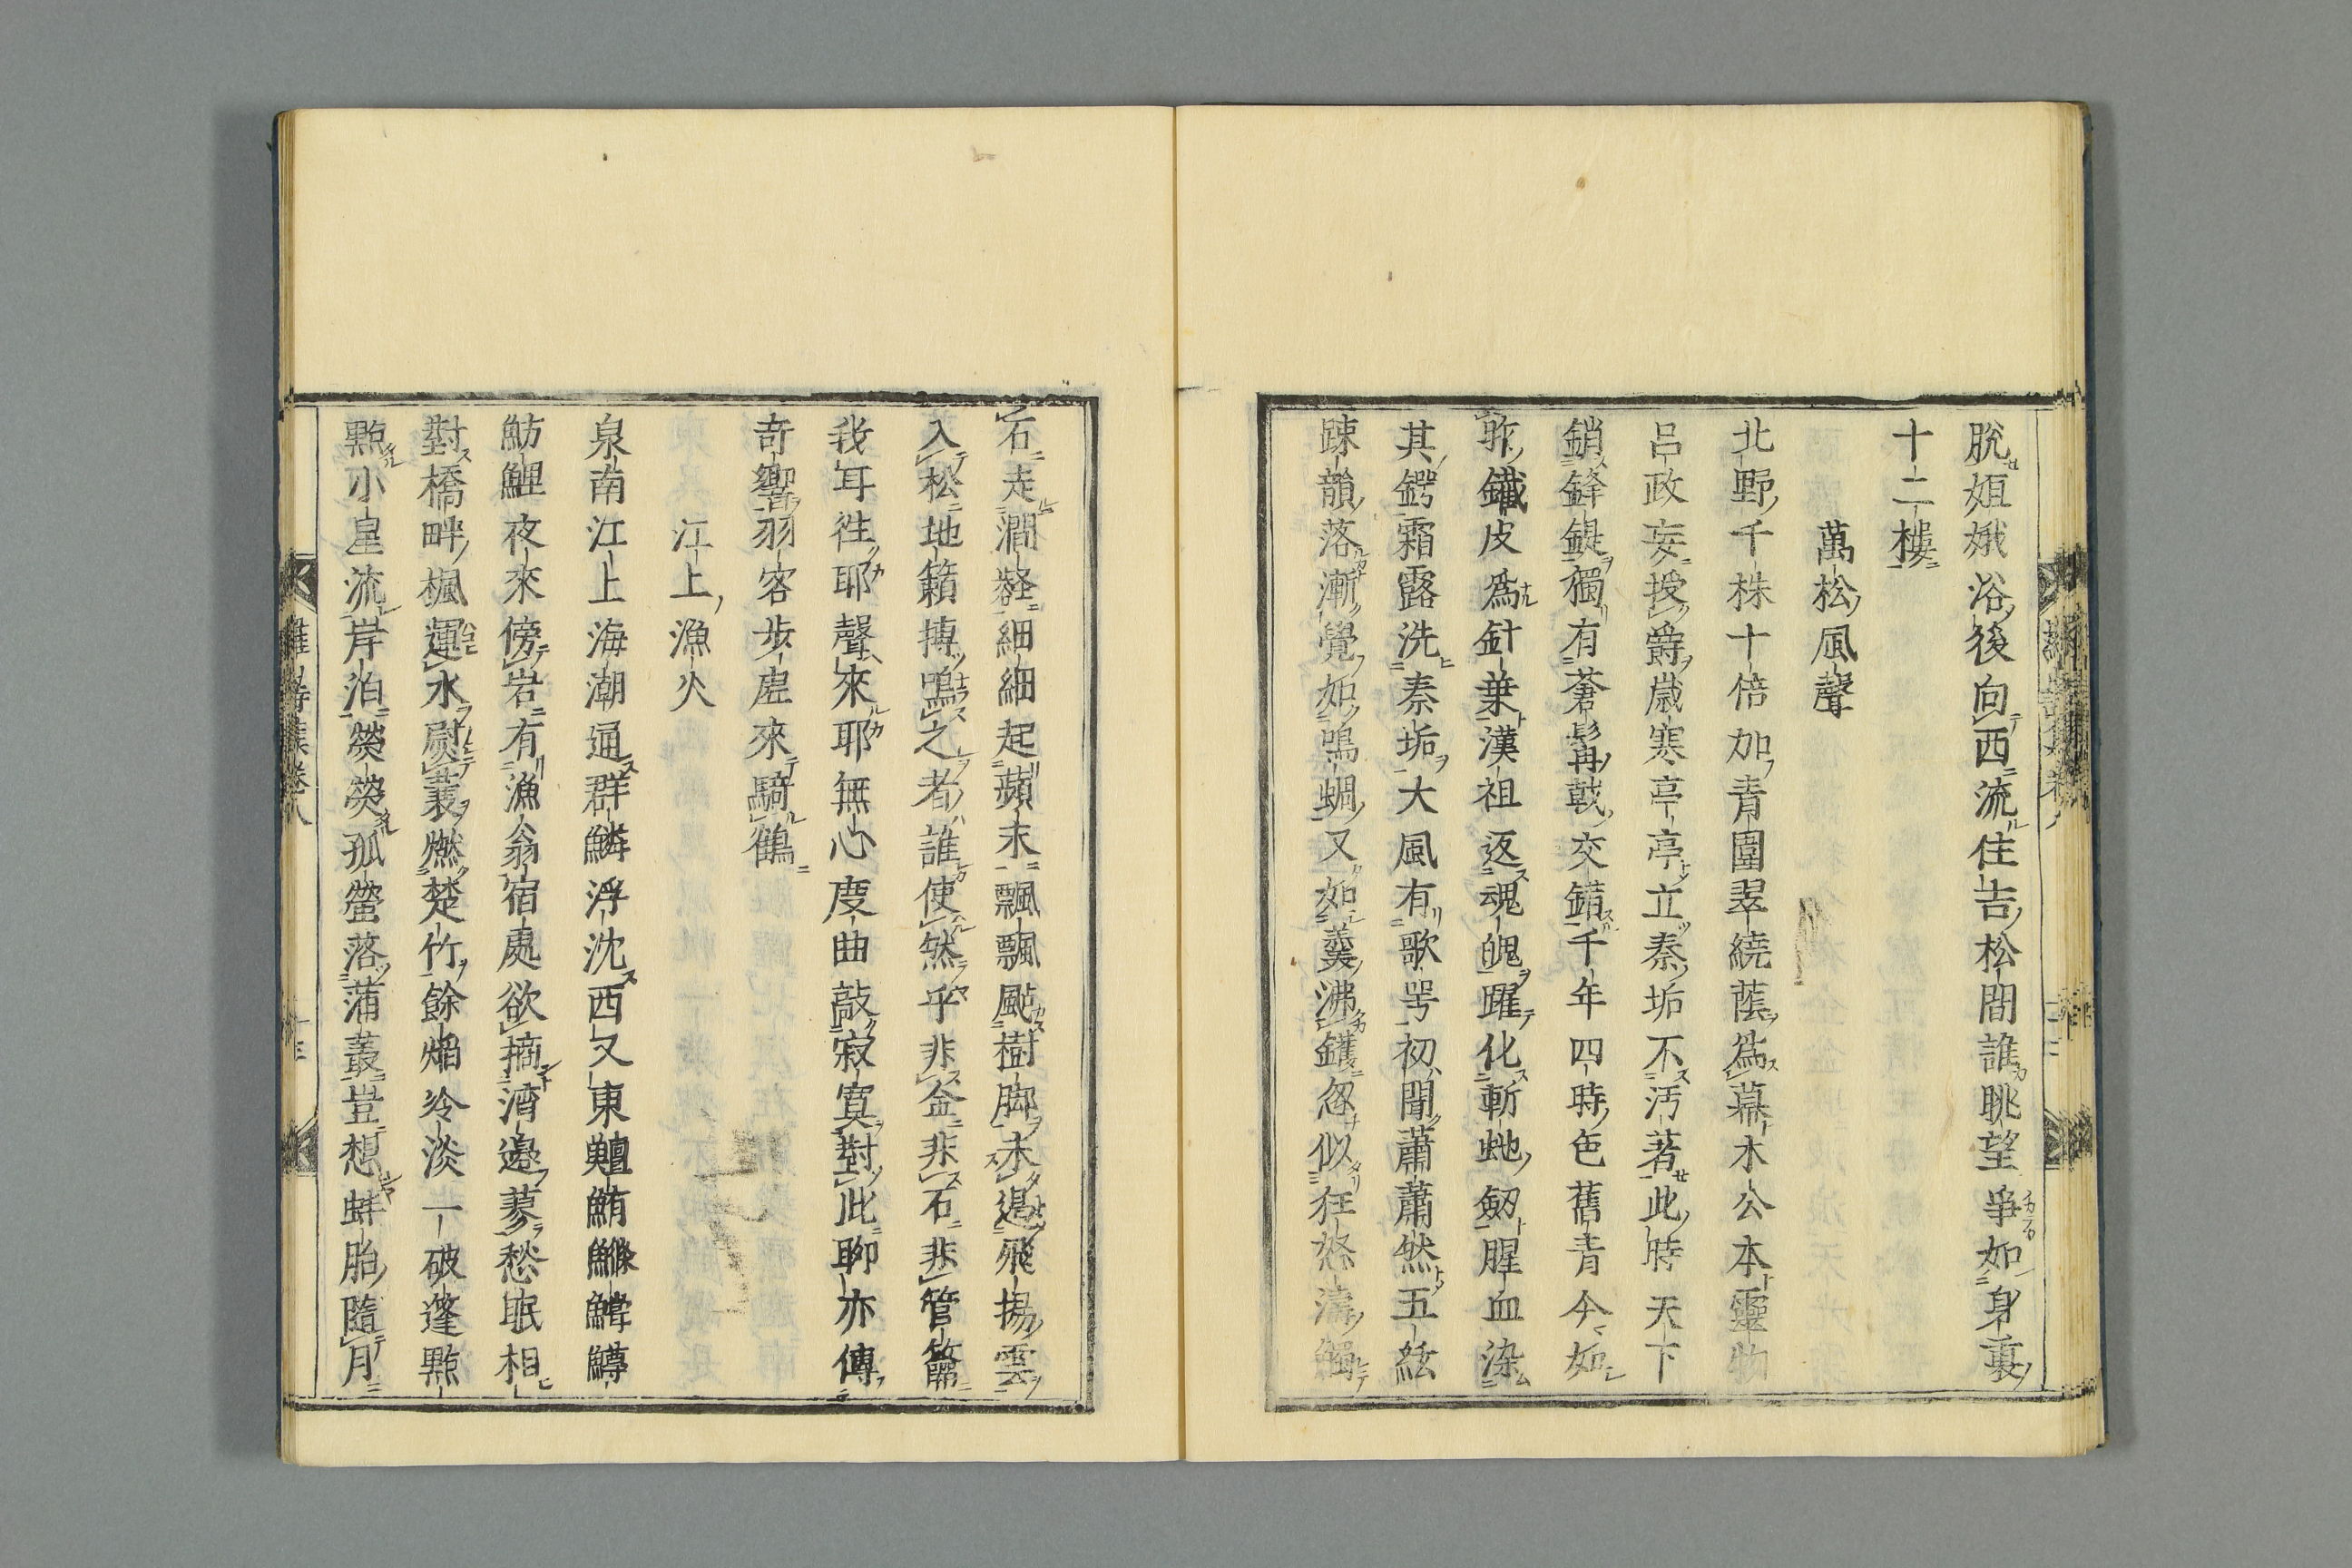 脫姮娥浴後向西流住吉松間誰眺望爭如身裏
十二樓
萬松風聲
北野千株十倍加青圍翠繞蔭爲幕木公本靈物
呂政妄授爵歲寒亭亭立秦垢不汚著此時天下
銷鋒鍉獨有蒼髯戟交錯千年四時色舊青今如
昨鐵皮爲針葉漢祖返魂魄躍化斬虵劒腥血染
其鍔霜露洗秦垢大風有歌咢初聞蕭蕭然五絃
踈韻落漸覺如鳴蜩又如羹沸鑊忽似狂怒濤觸
石走澗壑細細起蘋末飄飄颭樹脚未遏飛揚雲
入松地籟摶鳴之者誰使然乎非金非石非管籥
我耳徃耶聲來耶無心度曲敲寂寞對此聊亦傳
奇響羽客步虛來騎鶴
江上漁火
泉南江上海潮通群鱗浮沈西又東鱣鮪鰷鱨鱒
魴鯉夜來傍岩有漁翁宿處欲摘渚邊蓼愁眠相
對橋畔楓運水熨蓑燃楚竹餘焰冷淡一破蓬點
點小星流岸泊熒熒孤螢落蒲叢豈想蚌胎隨月
雜詩集卷八